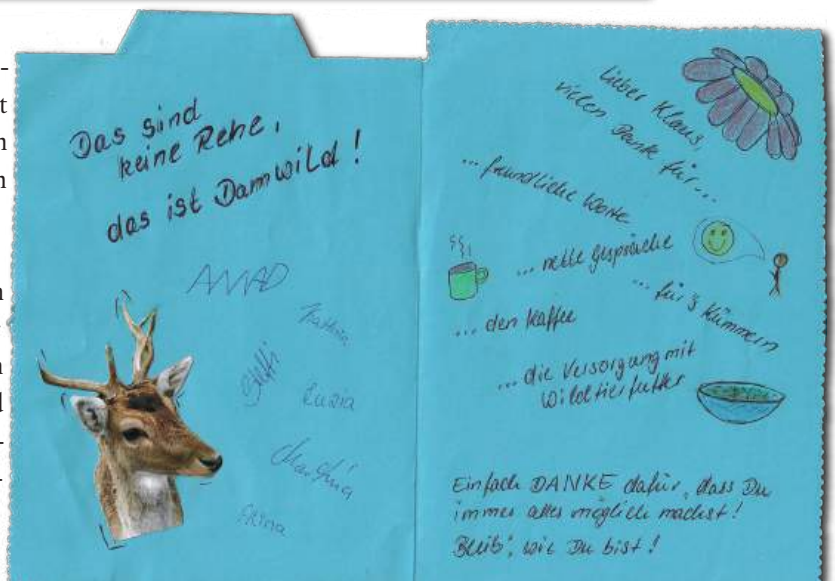 Das sind
keine Rehe,
das ist Damwild!
AMAD
Kathrin
Steffi
Luzia
Martina
Lieber Klaus,
vielen Dank für...
... freundliche Worte
... nette Gespräche
... für's Kümmern
... den Kaffee
... die Versorgung mit
Wildtierfutter
Einfach DANKE dafür, dass Du
immer alles möglich machst!
Bleib', wie Du bist!